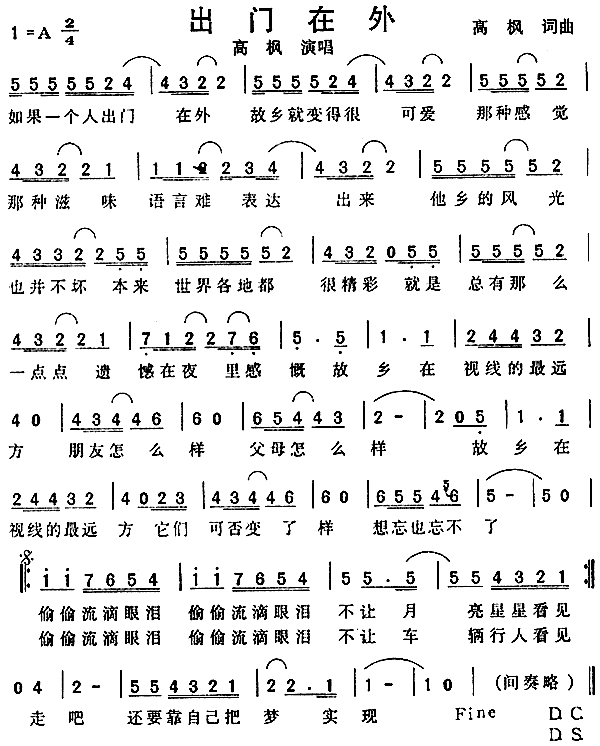 出门在外
1=A 2/4
高 枫 词曲
高 枫 演唱
5 5 5 5 5 5 2 4 | 4 3 2 2 | 5 5 5 5 5 2 4 | 4 3 2 2 | 5 5 5 5 5 2
如果一个人出门 在外 故乡就变得很 可爱 那种感觉
4 3 2 2 2 1 | 1 1 2 2 3 4 | 4 3 2 2 | 5 5 5 5 5 2
那种滋 味 语言难 表达 出来 他乡的风光
4 3 3 2 2 5 5 | 5 5 5 5 5 2 | 4 3 2 0 5 5 | 5 5 5 5 2
也并不坏 本来 世界各地都 很精彩 就是 总有那么
4 3 2 2 2 1 | 7 1 2 2 7 6 | 5 . 5 | 1 . 1 | 2 4 4 3 2
一点点 遗 憾在夜 里感 慨 故 乡 在 视线的最远
4 0 | 4 3 4 4 4 6 | 6 0 | 6 5 4 4 4 3 | 2 - | 2 0 5 | 1 . 1
方 朋友怎么 样 父母怎么 样 故 乡 在
2 4 4 3 2 | 4 0 2 3 | 4 3 4 4 6 | 6 0 | 6 5 5 4 6 | 5 - | 5 0
视线的最远 方 它们 可否变了 样 想忘也忘不 了
i i 7 6 5 4 | i i 7 6 5 4 | 5 5 . 5 | 5 5 4 3 2 1
偷偷流滴眼泪 偷偷流滴眼泪 不让 月 亮星星看见
偷偷流滴眼泪 偷偷流滴眼泪 不让 车 辆行人看见
0 4 | 2 - | 5 5 4 3 2 1 | 2 2 . 1 | 1 - | 1 0 (间奏略)
走 吧 还要靠自己把 梦 实 现 Fine D.C.
D.S.